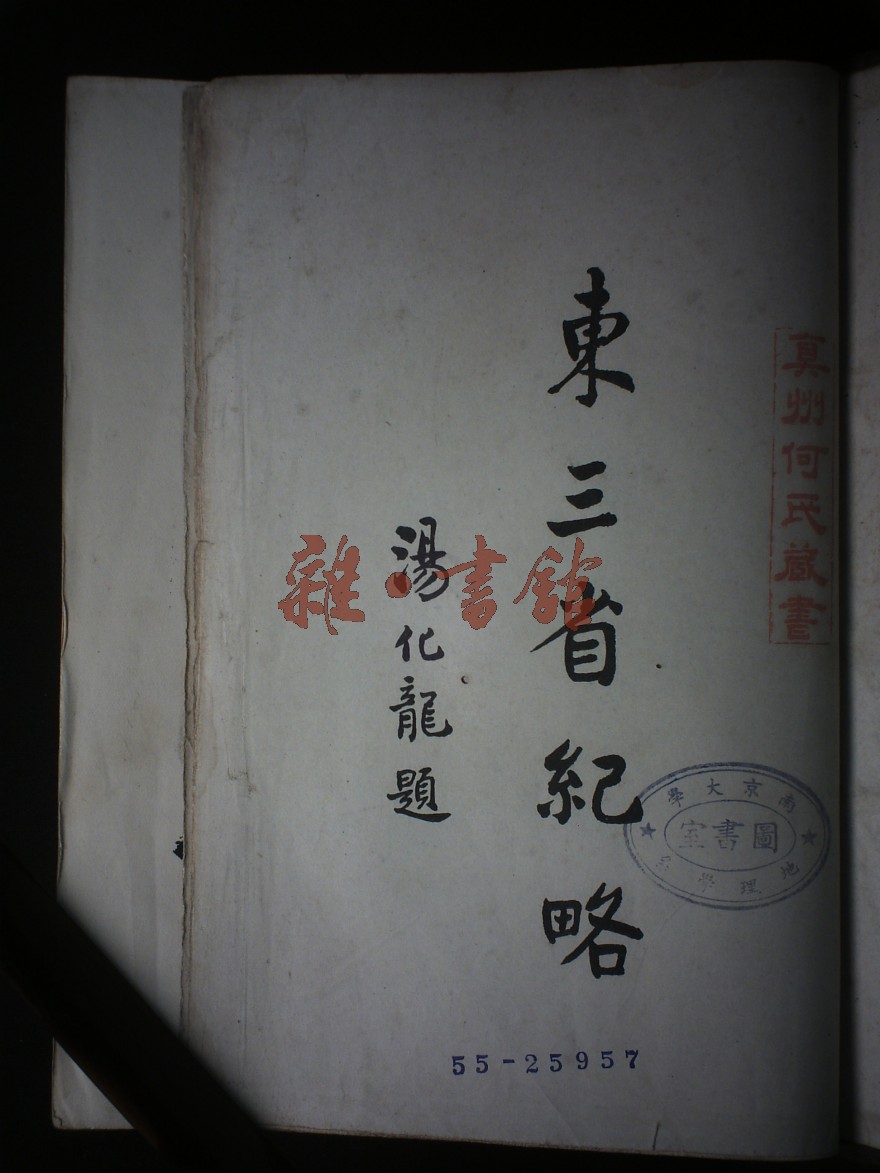 真州何氏藏書
東三省紀略
湯化龍題
雜·書館
南京大學
圖書室
地理學系
55-25957